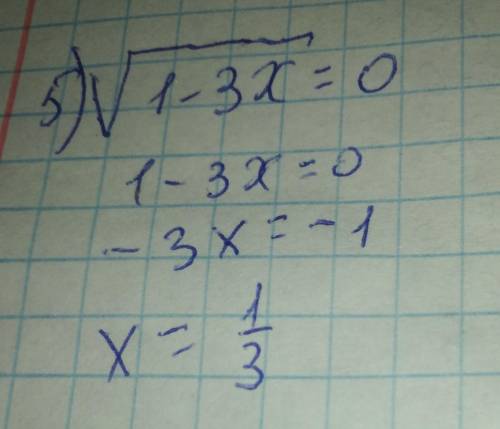 5) √(1-3x) = 0
1-3x=0
-3x=-1
x = 1/3